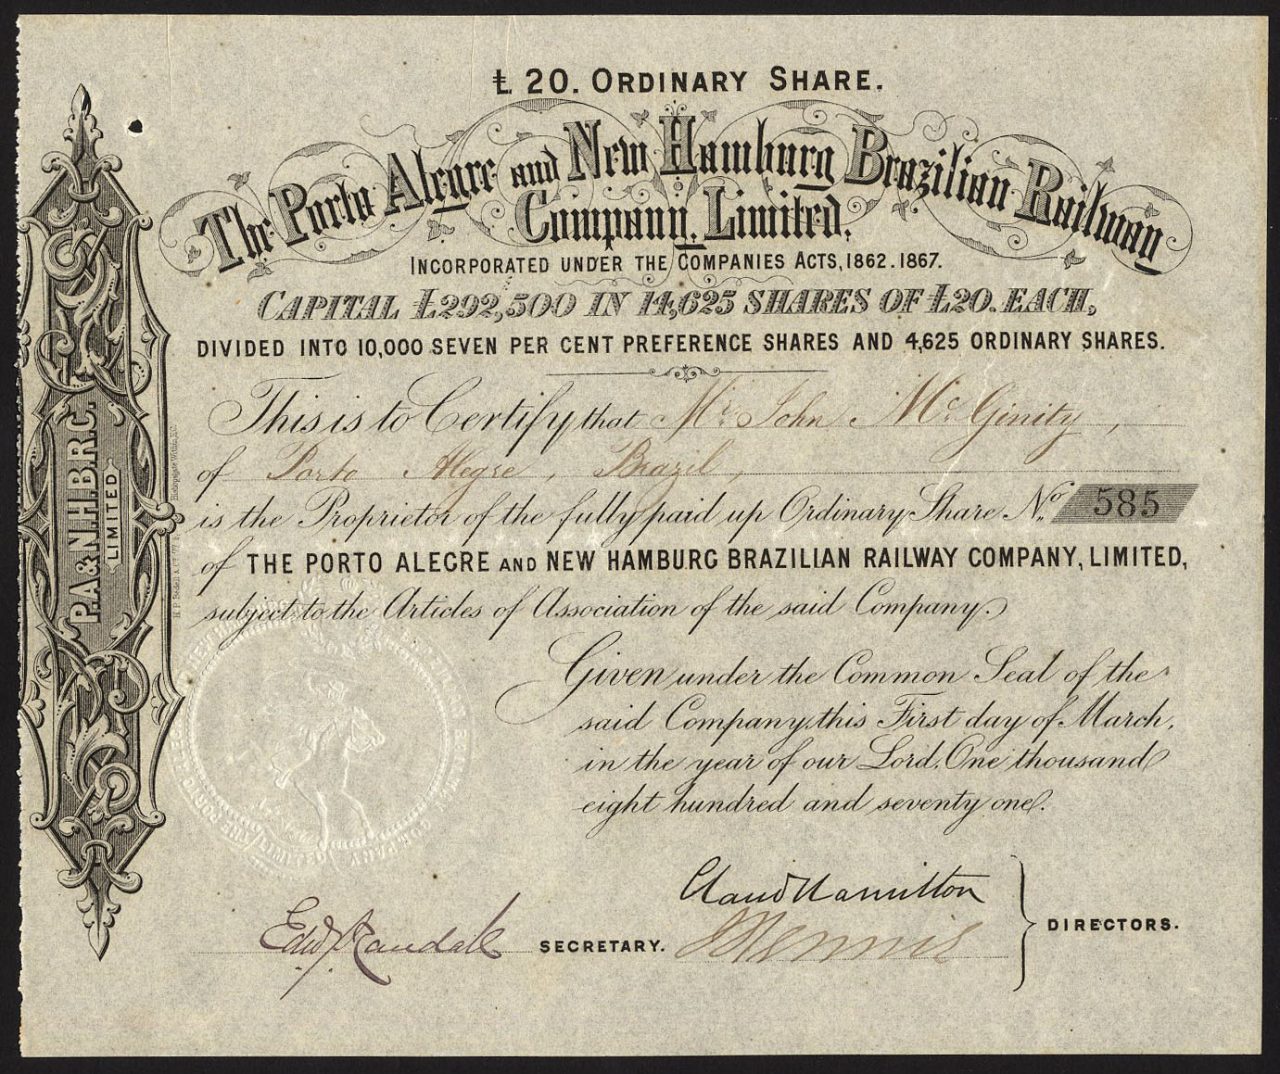 £20. ORDINARY SHARE.
The Porto Alegre and New Hamburg Brazilian Railway
Company, Limited,
INCORPORATED UNDER THE COMPANIES ACTS, 1862.1867.
CAPITAL £292,500 IN 14,625 SHARES OF £20. EACH,
DIVIDED INTO 10,000 SEVEN PER CENT PREFERENCE SHARES AND 4,625 ORDINARY SHARES.
This is to Certify that Mr. John McGinity,
of Porto Alegre, Brazil,
is the Proprietor of the fully paid up Ordinary Share No. 585
of THE PORTO ALEGRE AND NEW HAMBURG BRAZILIAN RAILWAY COMPANY, LIMITED,
subject to the Articles of Association of the said Company.
Given under the Common Seal of the
said Company, this First day of March,
in the year of our Lord, One thousand
eight hundred and seventy one.
Claud Hamilton
Edw. Randall SECRETARY. DIRECTORS.
P.A. & N.H.B.R.C.
LIMITED